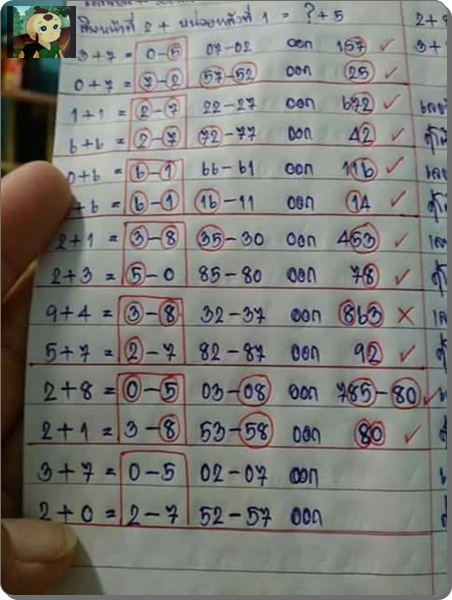 สิบหน้าที่ 2 + หน่วยหลังที่ 1 = ? + 5 2+
3+7 = 0-5 07-02 ออก 157 ✓ 3+
0+7 = 7-2 57-52 ออก 25 ✓
1+1 = 2-7 22-27 ออก 672 ✓
6+6 = 2-7 72-77 ออก 42 ✓
0+6 = 6-1 66-61 ออก 116 ✓
+6 = 6-1 16-11 ออก 14 ✓
2+1 = 3-8 35-30 ออก 453 ✓
2+3 = 5-0 85-80 ออก 78 ✓
9+4 = 3-8 32-37 ออก 863 ×
5+7 = 2-7 82-87 ออก 92 ✓
2+8 = 0-5 03-08 ออก 785-80 ✓
2+1 = 3-8 53-58 ออก 80 ✓
3+7 = 0-5 02-07 ออก
2+0 = 2-7 52-57 ออก